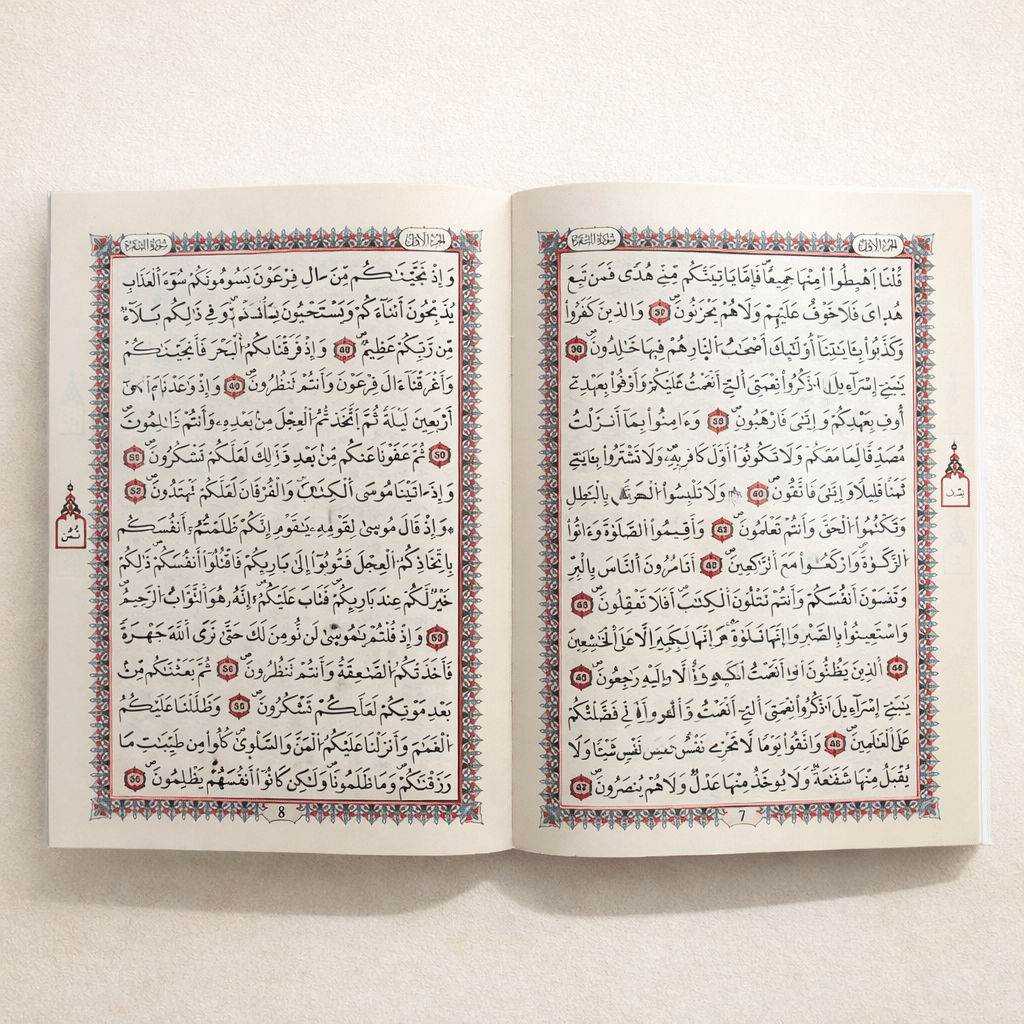 الجزء الأول
سورة البقرة
قُلْنَا اهْبِطُوا مِنْهَا جَمِيعًا فَإِمَّا يَاتِيَنَّكُم مِّنِّي هُدًى فَمَن تَبِعَ
هُدَايَ فَلَا خَوْفٌ عَلَيْهِمْ وَلَا هُمْ يَحْزَنُونَ وَالذِينَ كَفَرُوا
وَكَذَّبُوا بِـَٔايَٰتِنَا أُوْلَٰٓئِكَ أَصْحَٰبُ النّارِ هُمْ فِيهَا خَٰلِدُونَ
يَٰبَنِي إِسْرَآءِيلَ اَذْكُرُوا نِعْمَتِيَ الَّتِي أَنْعَمْتُ عَلَيْكُمْ وَأَوْفُوا بِعَهْدِي
أُوفِ بِعَهْدِكُمْ وَإِيَّٰيَ فَارْهَبُونِ وَءَامِنُوا بِمَا أَنزَلْتُ
مُصَدِّقًا لِّمَا مَعَكُمْ وَلَا تَكُونُوا أَوَّلَ كَافِرٍ بِهِ وَلَا تَشْتَرُوا بِـَٔايَٰتِي
ثَمَنًا قَلِيلًا وَإِيَّٰيَ فَاتَّقُونِ 40 وَلَا تَلْبِسُوا بِالْبَٰطِلِ
وَتَكْتُمُوا الْحَقَّ وَأَنتُمْ تَعْلَمُونَ وَأَقِيمُوا الصَّلَوٰةَ وَءَاتُوا
الزَّكَوٰةَ وَارْكَعُوا مَعَ الرَّٰكِعِينَ أَتَامُرُونَ النَّاسَ بِالْبِرِّ
وَتَنسَوْنَ أَنفُسَكُمْ وَأَنتُمْ تَتْلُونَ الْكِتَٰبَ أَفَلَا تَعْقِلُونَ
وَاسْتَعِينُوا بِالصَّبْرِ وَإِنَّهَا إِلَّا عَلَى الْخَٰشِعِينَ
الَّذِينَ يَظُنُّونَ إِلَيْهِ رَٰجِعُونَ
يَٰبَنِي إِسْرَآءِيلَ اَذْكُرُوا نِعْمَتِيَ الَّتِي أَنْعَمْتُ فَضَّلْتُكُمْ
عَلَى الْعَٰلَمِينَ وَاتَّقُوا يَوْمًا لَّا تَجْزِي نَفْسٌ نَفْسٍ شَيْـًٔا وَلَا
يُقْبَلُ مِنْهَا شَفَٰعَةٌ وَلَا يُوخَذُ مِنْهَا عَدْلٌ وَلَا هُمْ يُنصَرُونَ
7
الجزء الأول
سورة البقرة
وَإِذْ نَجَّيْنَٰكُم مِّنْ ءَالِ فِرْعَوْنَ يَسُومُونَكُمْ سُوٓءَ الْعَذَابِ
يُذَبِّحُونَ أَبْنَآءَكُمْ وَيَسْتَحْيُونَ وَفِي ذَٰلِكُم بَلَآءٌ
مِّن رَّبِّكُمْ عَظِيمٌ وَإِذْ فَرَقْنَا بِكُمُ الْبَحْرَ فَأَنجَيْنَٰكُمْ
وَأَغْرَقْنَا ءَالَ فِرْعَوْنَ وَأَنتُمْ تَنظُرُونَ وَإِذْ وَٰعَدْنَا
أَرْبَعِينَ لَيْلَةً ثُمَّ اتَّخَذتُّمُ الْعِجْلَ مِنْ بَعْدِهِ وَأَنتُمْ ظَٰلِمُونَ
50 ثُمَّ عَفَوْنَا عَنكُم مِّنْ بَعْدِ ذَٰلِكَ لَعَلَّكُمْ تَشْكُرُونَ
وَإِذَ اتَيْنَا مُوسَى الْكِتَٰبَ وَالْفُرْقَانَ لَعَلَّكُمْ تَهْتَدُونَ
وَإِذْ قَالَ مُوسَىٰ لِقَوْمِهِ يَٰقَوْمِ إِنَّكُمْ ظَلَمْتُمُ أَنفُسَكُم
بِاتِّخَاذِكُمُ الْعِجْلَ فَتُوبُوا إِلَىٰ بَارِئِكُمْ فَاقْتُلُوا أَنفُسَكُمْ ذَٰلِكُمْ
خَيْرٌ لَّكُمْ عِندَ بَارِئِكُمْ فَتَابَ عَلَيْكُمْ إِنَّهُ هُوَ التَّوَّابُ الرَّحِيمُ
وَإِذْ قُلْتُمْ يَٰمُوسَىٰ لَن نُّومِنَ لَكَ حَتَّىٰ نَرَى اللَّهَ جَهْرَةً
فَأَخَذَتْكُمُ الصَّٰعِقَةُ وَأَنتُمْ تَنظُرُونَ ثُمَّ بَعَثْنَٰكُم مِّنْ
بَعْدِ مَوْتِكُمْ لَعَلَّكُمْ تَشْكُرُونَ وَظَلَّلْنَا عَلَيْكُمُ
الْغَمَٰمَ وَأَنزَلْنَا عَلَيْكُمُ الْمَنَّ وَالسَّلْوَىٰ كُلُوا مِن طَيِّبَٰتِ مَا
رَزَقْنَٰكُمْ وَمَا ظَلَمُونَا وَلَٰكِن كَانُوا أَنفُسَهُمْ يَظْلِمُونَ
8
ثمن